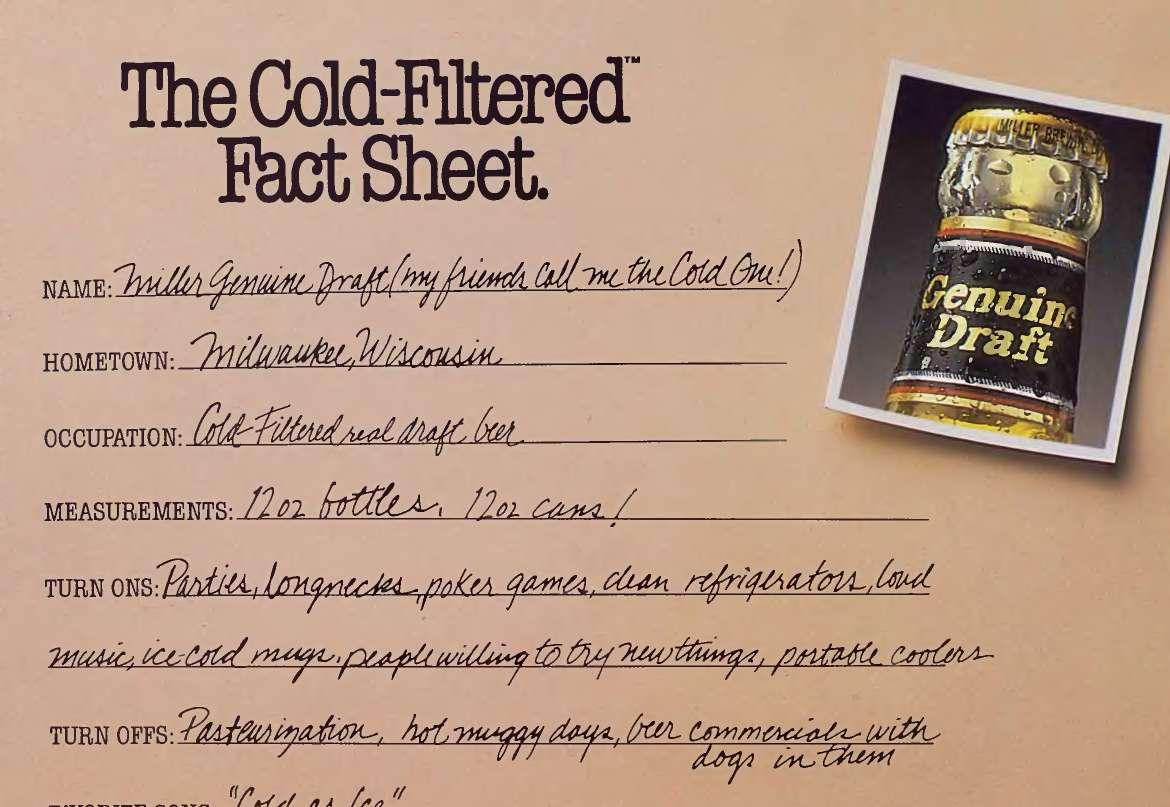 The Cold-Filtered™
Fact Sheet.
MILLER BREWING
Genuine
Draft
NAME: Miller Genuine Draft (my friends call me the Cold One!)
HOMETOWN: Milwaukee, Wisconsin
OCCUPATION: Cold-Filtered real draft beer
MEASUREMENTS: 12 oz bottles. 12 oz cans!
TURN ONS: Parties, longnecks, poker games, clean refrigerators, loud
music, ice-cold mugs, people willing to try new things, portable coolers
TURN OFFS: Pasteurization, hot muggy days, beer commercials with
dogs in them
FAVORITE SONG: "Cold as Ice"